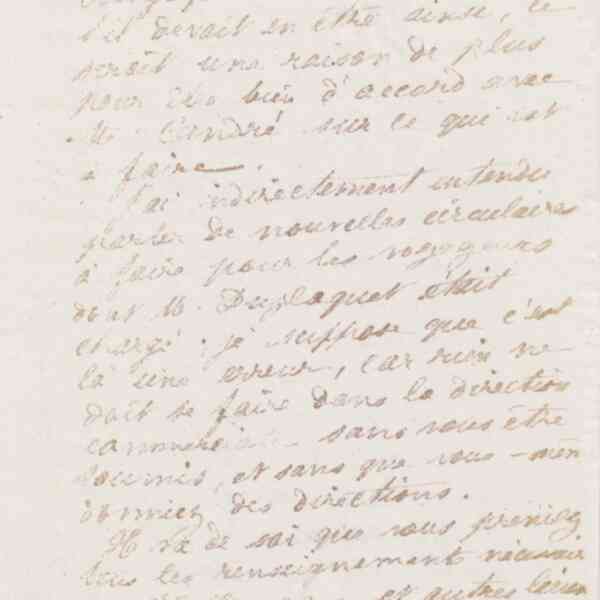 s'il devait en être ainsi, ce
serait une raison de plus
pour être bien d'accord avec
M. André sur ce qui est
à faire.
J'ai indirectement entendu
parler de nouvelles circulaires
à faire pour les voyageurs
dont M. Duplaquet était
chargé ; je suppose que c'est
là une erreur, car rien ne
doit se faire dans la direction
commerciale sans vous être
soumis, et sans que vous-même
donniez des directions.
Il va de soi que vous preniez
tous les renseignements nécessaires
et autres